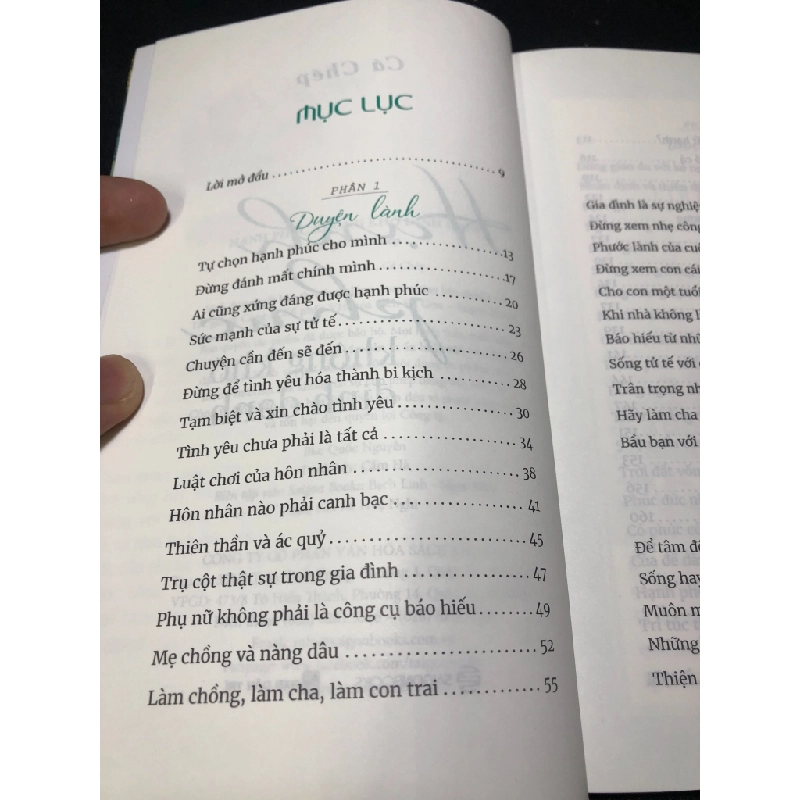 MỤC LỤC
Lời mở đầu ........ 9
PHẦN 1
Duyên lành
Tự chọn hạnh phúc cho mình ........ 13
Đừng đánh mất chính mình ........ 17
Ai cũng xứng đáng được hạnh phúc ........ 20
Sức mạnh của sự tử tế ........ 23
Chuyện cần đến sẽ đến ........ 26
Đừng để tình yêu hóa thành bi kịch ........ 28
Tạm biệt và xin chào tình yêu ........ 30
Tình yêu chưa phải là tất cả ........ 34
Luật chơi của hôn nhân ........ 38
Hôn nhân nào phải canh bạc ........ 41
Thiên thần và ác quỷ ........ 45
Trụ cột thật sự trong gia đình ........ 47
Phụ nữ không phải là công cụ báo hiếu ........ 49
Mẹ chồng và nàng dâu ........ 52
Làm chồng, làm cha, làm con trai ........ 55
Gia đình là sự nghiệ
Đừng xem nhẹ côn
Phước lành của cu
Đừng xem con cái
Cho con một tuổ
Khi nhà không
Báo hiếu từ nh
Sống tử tế với
Trân trọng nh
Hãy làm cha
Bầu bạn với
Để tâm
Sống hay
Muôn m
Những
Thiện